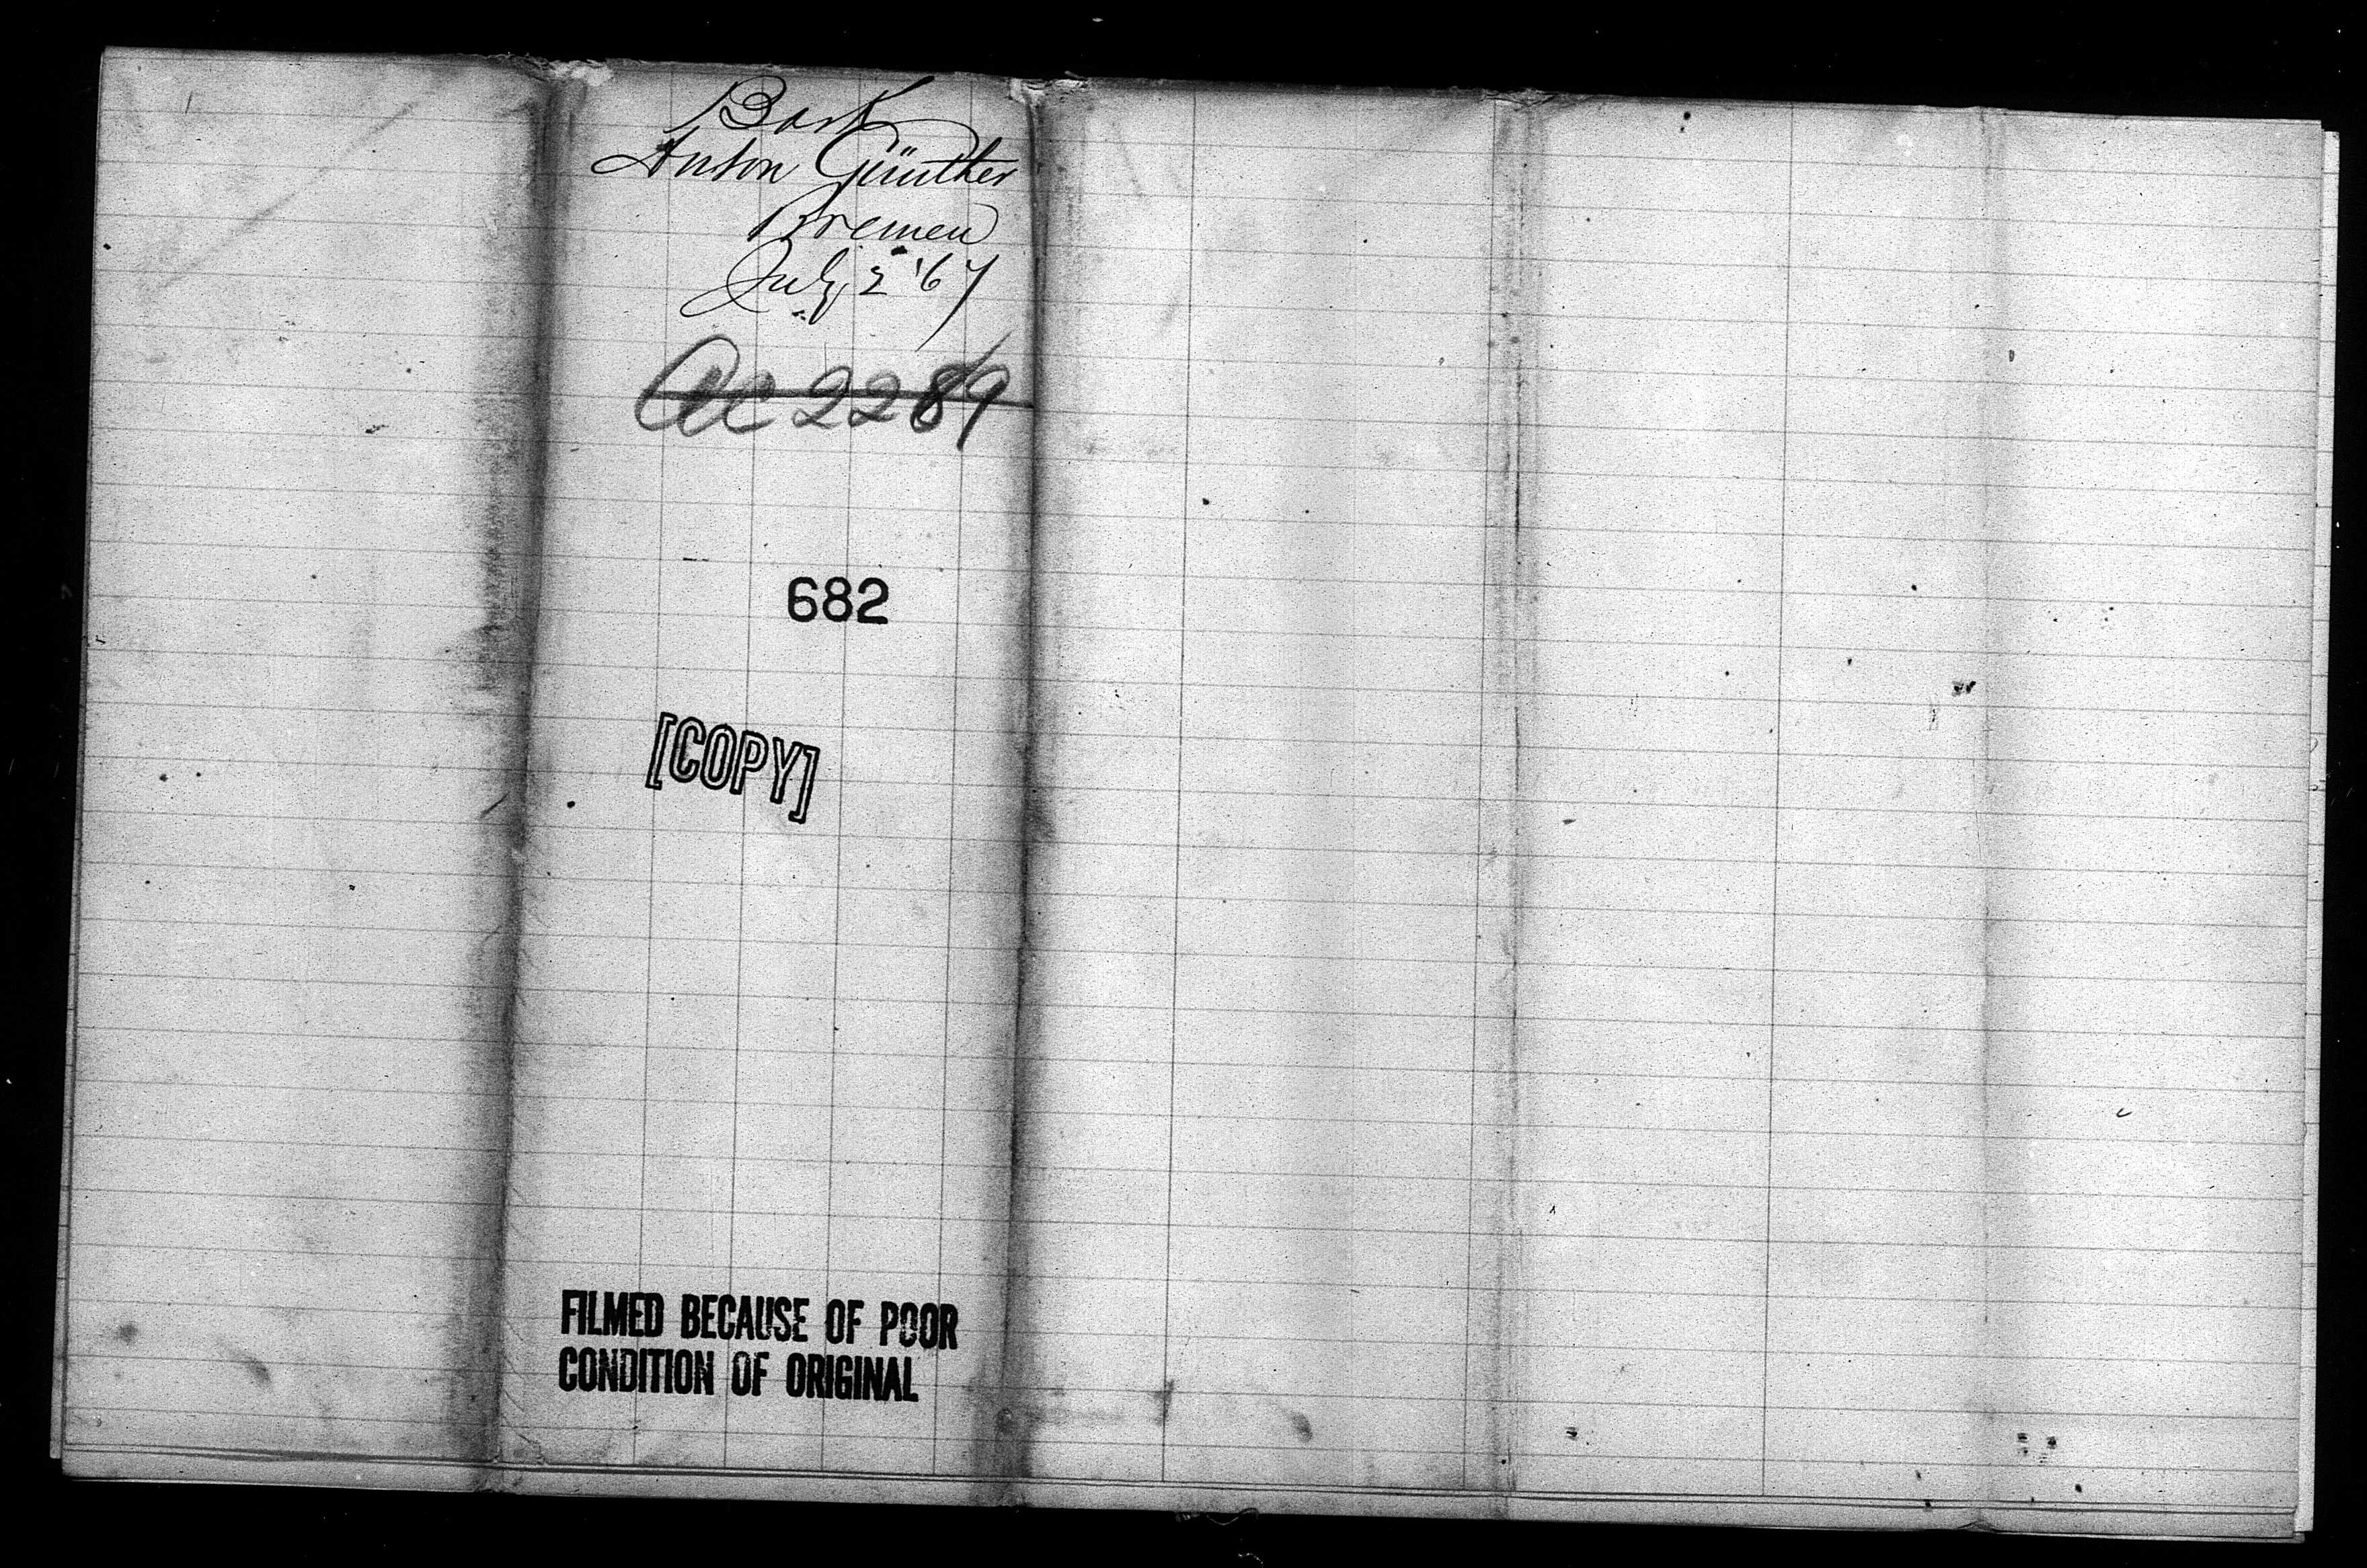 Bark
Anton Günther
Bremen
July 2 '67
AC 2289
682
[COPY]
FILMED BECAUSE OF POOR
CONDITION OF ORIGINAL